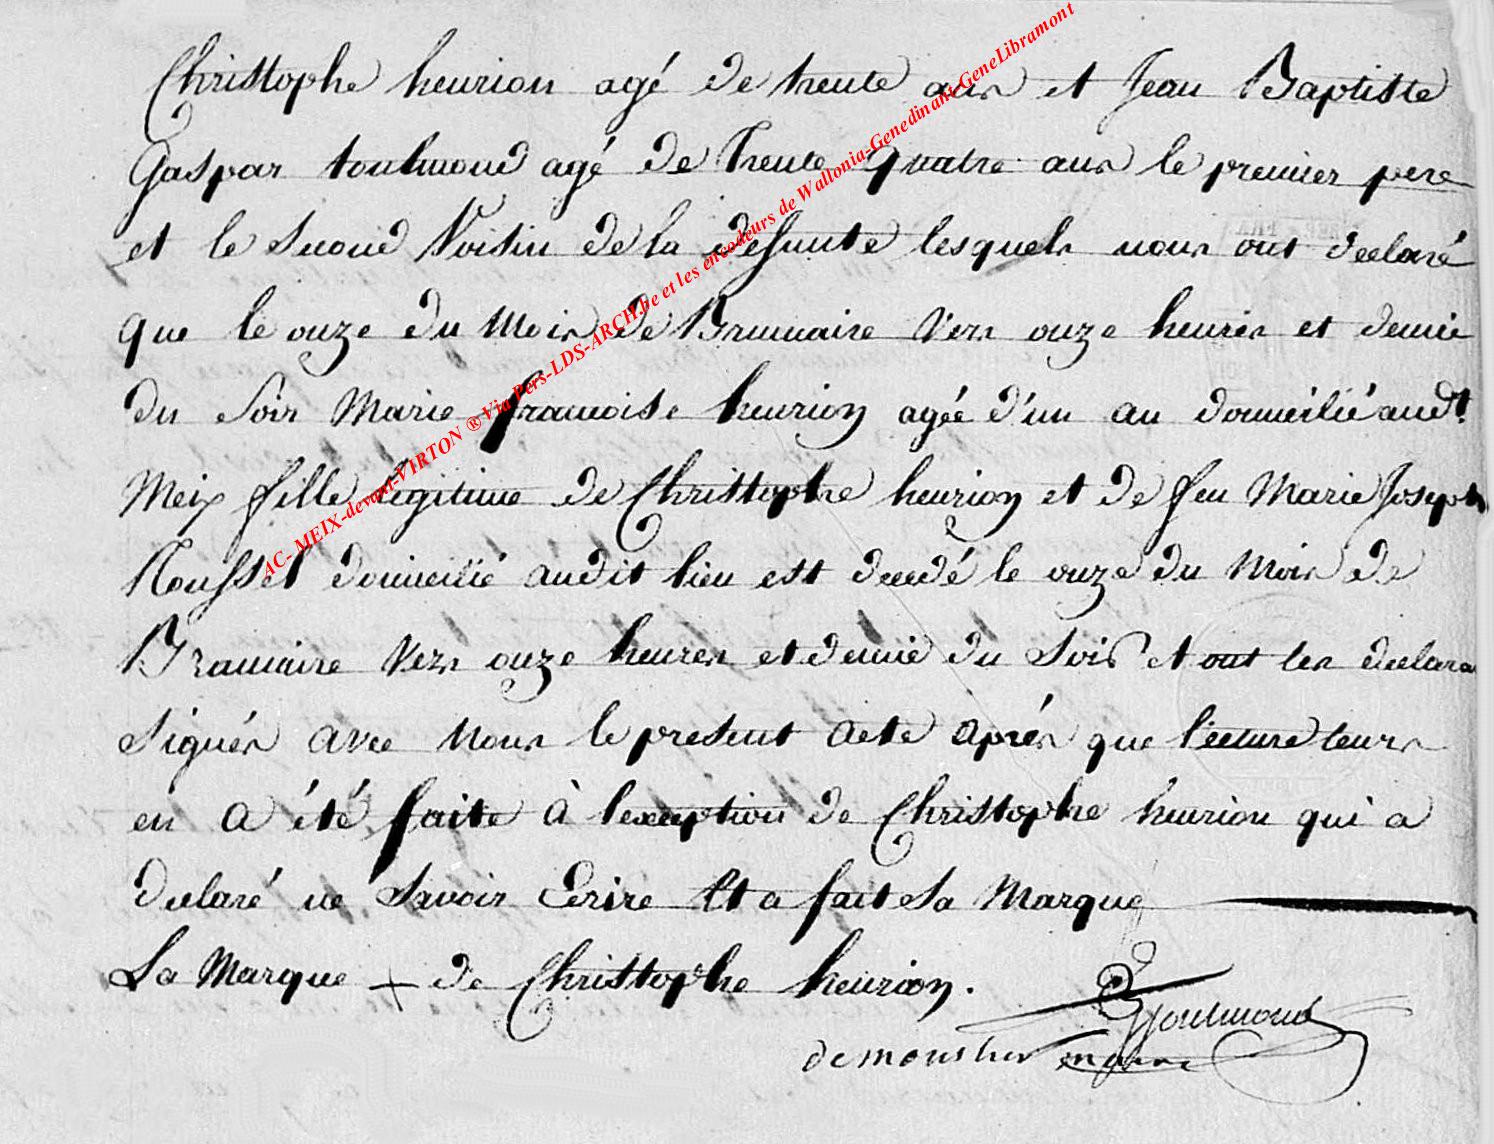 Christophe henrion agé de trente ans et Jean Baptiste
Gaspar toulmond agé de trente quatre ans le premier pere
et le second Voisin de la defunte lesquels nous ont declaré
que le onze du Mois de Brumaire Vers onze heures et demie
du Soir Marie francoise henrion agée d'un an domicilié audt
Meix fille legitime de Christophe henrion et de feu Marie Joseph
Rousset domicilié audit lieu est decedé le onze du Mois de
Brumaire Vers onze heures et demie du Soir et ont les declara
Signés avec Nous le present acte après que lecture leurs
en a été faite à lexception de Christophe henrion qui a
declaré ne Savoir Ecrire Et a fait Sa Marque
La Marque + de Christophe henrion.
Toulmond
demoustier maire
AC- MEIX-devant-VIRTON ® Via Pers-LDS-ARCH.be et les encodeurs de Wallonia-Genedinant-GeneLibramont